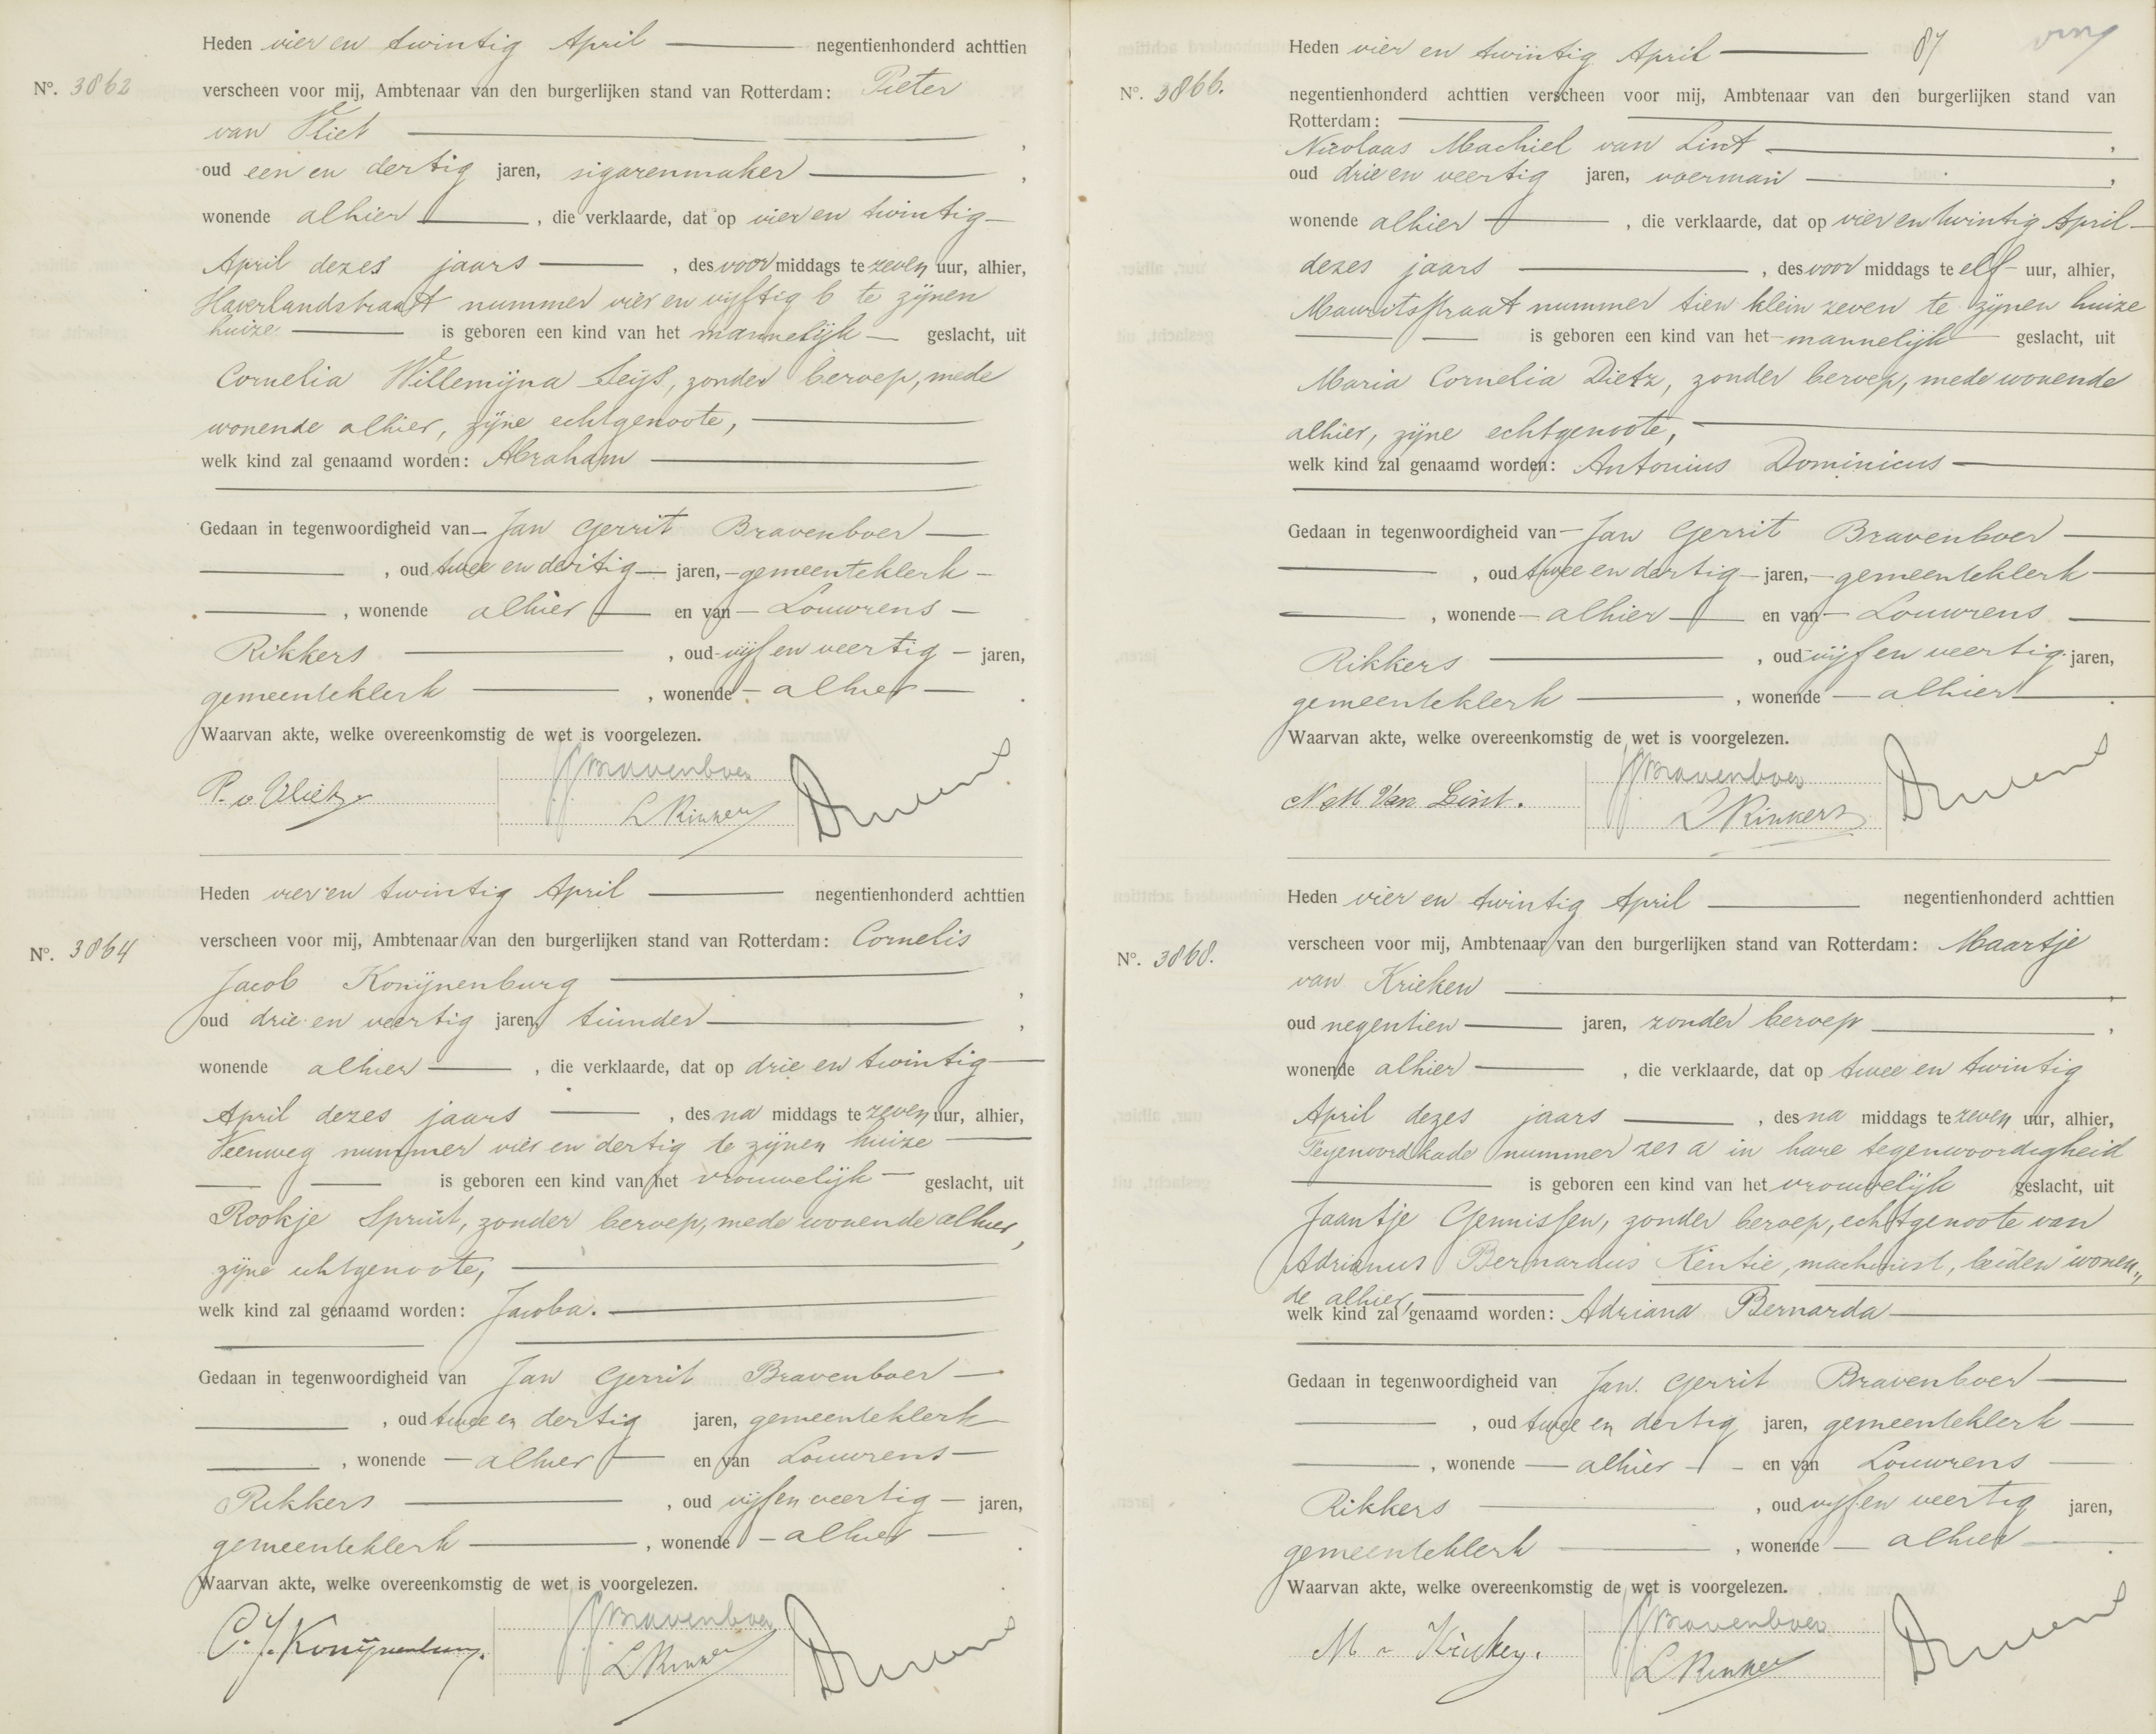 Heden vier en twintig April negentienhonderd achttien
No. 3862 verscheen voor mij, Ambtenaar van den burgerlijken stand van Rotterdam: Pieter
van Vliet ,
oud een en dertig jaren, sigarenmaker ,
wonende alhier , die verklaarde, dat op vier en twintig
April dezes jaars , des voor middags te zeven uur, alhier,
Haverlandstraat nummer vier en vijftig b te zijnen
huize is geboren een kind van het mannelijk geslacht, uit
Cornelia Willemijna Seijs, zonder beroep, mede
wonende alhier, zijne echtgenoote,
welk kind zal genaamd worden: Abraham
Gedaan in tegenwoordigheid van Jan Gerrit Bravenboer
, oud twee en dertig jaren, gemeenteklerk
, wonende alhier en van Louwrens
Rikkers , oud vijf en veertig jaren,
gemeenteklerk , wonende alhier .
Waarvan akte, welke overeenkomstig de wet is voorgelezen.
P. v. Vliet
JGBravenboer
L Rikkers
Heden vier en twintig April negentienhonderd achttien
No. 3864 verscheen voor mij, Ambtenaar van den burgerlijken stand van Rotterdam: Cornelis
Jacob Konijnenburg ,
oud drie en veertig jaren, tuinder ,
wonende alhier , die verklaarde, dat op drie en twintig
April dezes jaars , des na middags te zeven uur, alhier,
Veenweg nummer vier en dertig te zijnen huize
is geboren een kind van het vrouwelijk geslacht, uit
Rookje Spruit, zonder beroep, mede wonende alhier,
zijne echtgenoote,
welk kind zal genaamd worden: Jacoba.
Gedaan in tegenwoordigheid van Jan Gerrit Bravenboer
, oud twee en dertig jaren, gemeenteklerk
, wonende alhier en van Louwrens
Rikkers , oud vijf en veertig jaren,
gemeenteklerk , wonende alhier .
Waarvan akte, welke overeenkomstig de wet is voorgelezen.
C. J. Konijnenburg.
JGBravenboer
L Rikkers
Heden vier en twintig April 87
No. 3866. negentienhonderd achttien verscheen voor mij, Ambtenaar van den burgerlijken stand van
Rotterdam:
Nicolaas Machiel van Lint ,
oud drie en veertig jaren, voerman ,
wonende alhier , die verklaarde, dat op vier en twintig April
dezes jaars , des voor middags te elf uur, alhier,
Mauritsstraat nummer tien klein zeven te zijnen huize
is geboren een kind van het mannelijk geslacht, uit
Maria Cornelia Dietz, zonder beroep, mede wonende
alhier, zijne echtgenoote,
welk kind zal genaamd worden: Antonius Dominicus
Gedaan in tegenwoordigheid van Jan Gerrit Bravenboer
, oud twee en dertig jaren, gemeenteklerk
, wonende alhier en van Louwrens
Rikkers , oud vijf en veertig jaren,
gemeenteklerk , wonende alhier .
Waarvan akte, welke overeenkomstig de wet is voorgelezen.
N M Van Lint.
JGBravenboer
L Rikkers
Heden vier en twintig April negentienhonderd achttien
No. 3868. verscheen voor mij, Ambtenaar van den burgerlijken stand van Rotterdam: Maartje
van Krieken ,
oud negentien jaren, zonder beroep ,
wonende alhier , die verklaarde, dat op twee en twintig
April dezes jaars , des na middags te zeven uur, alhier,
nummer zes a in hare tegenwoordigheid
is geboren een kind van het vrouwelijk geslacht, uit
Jaantje Gennissen, zonder beroep, echtgenoote van
Adrianus Bernardus Kentie, machinist, beiden wonen„
de alhier,
welk kind zal genaamd worden: Adriana Bernarda
Gedaan in tegenwoordigheid van Jan Gerrit Bravenboer
, oud twee en dertig jaren, gemeenteklerk
, wonende alhier en van Louwrens
Rikkers , oud vijf en veertig jaren,
gemeenteklerk , wonende alhier .
Waarvan akte, welke overeenkomstig de wet is voorgelezen.
M v Krieken.
JGBravenboer
L Rikkers